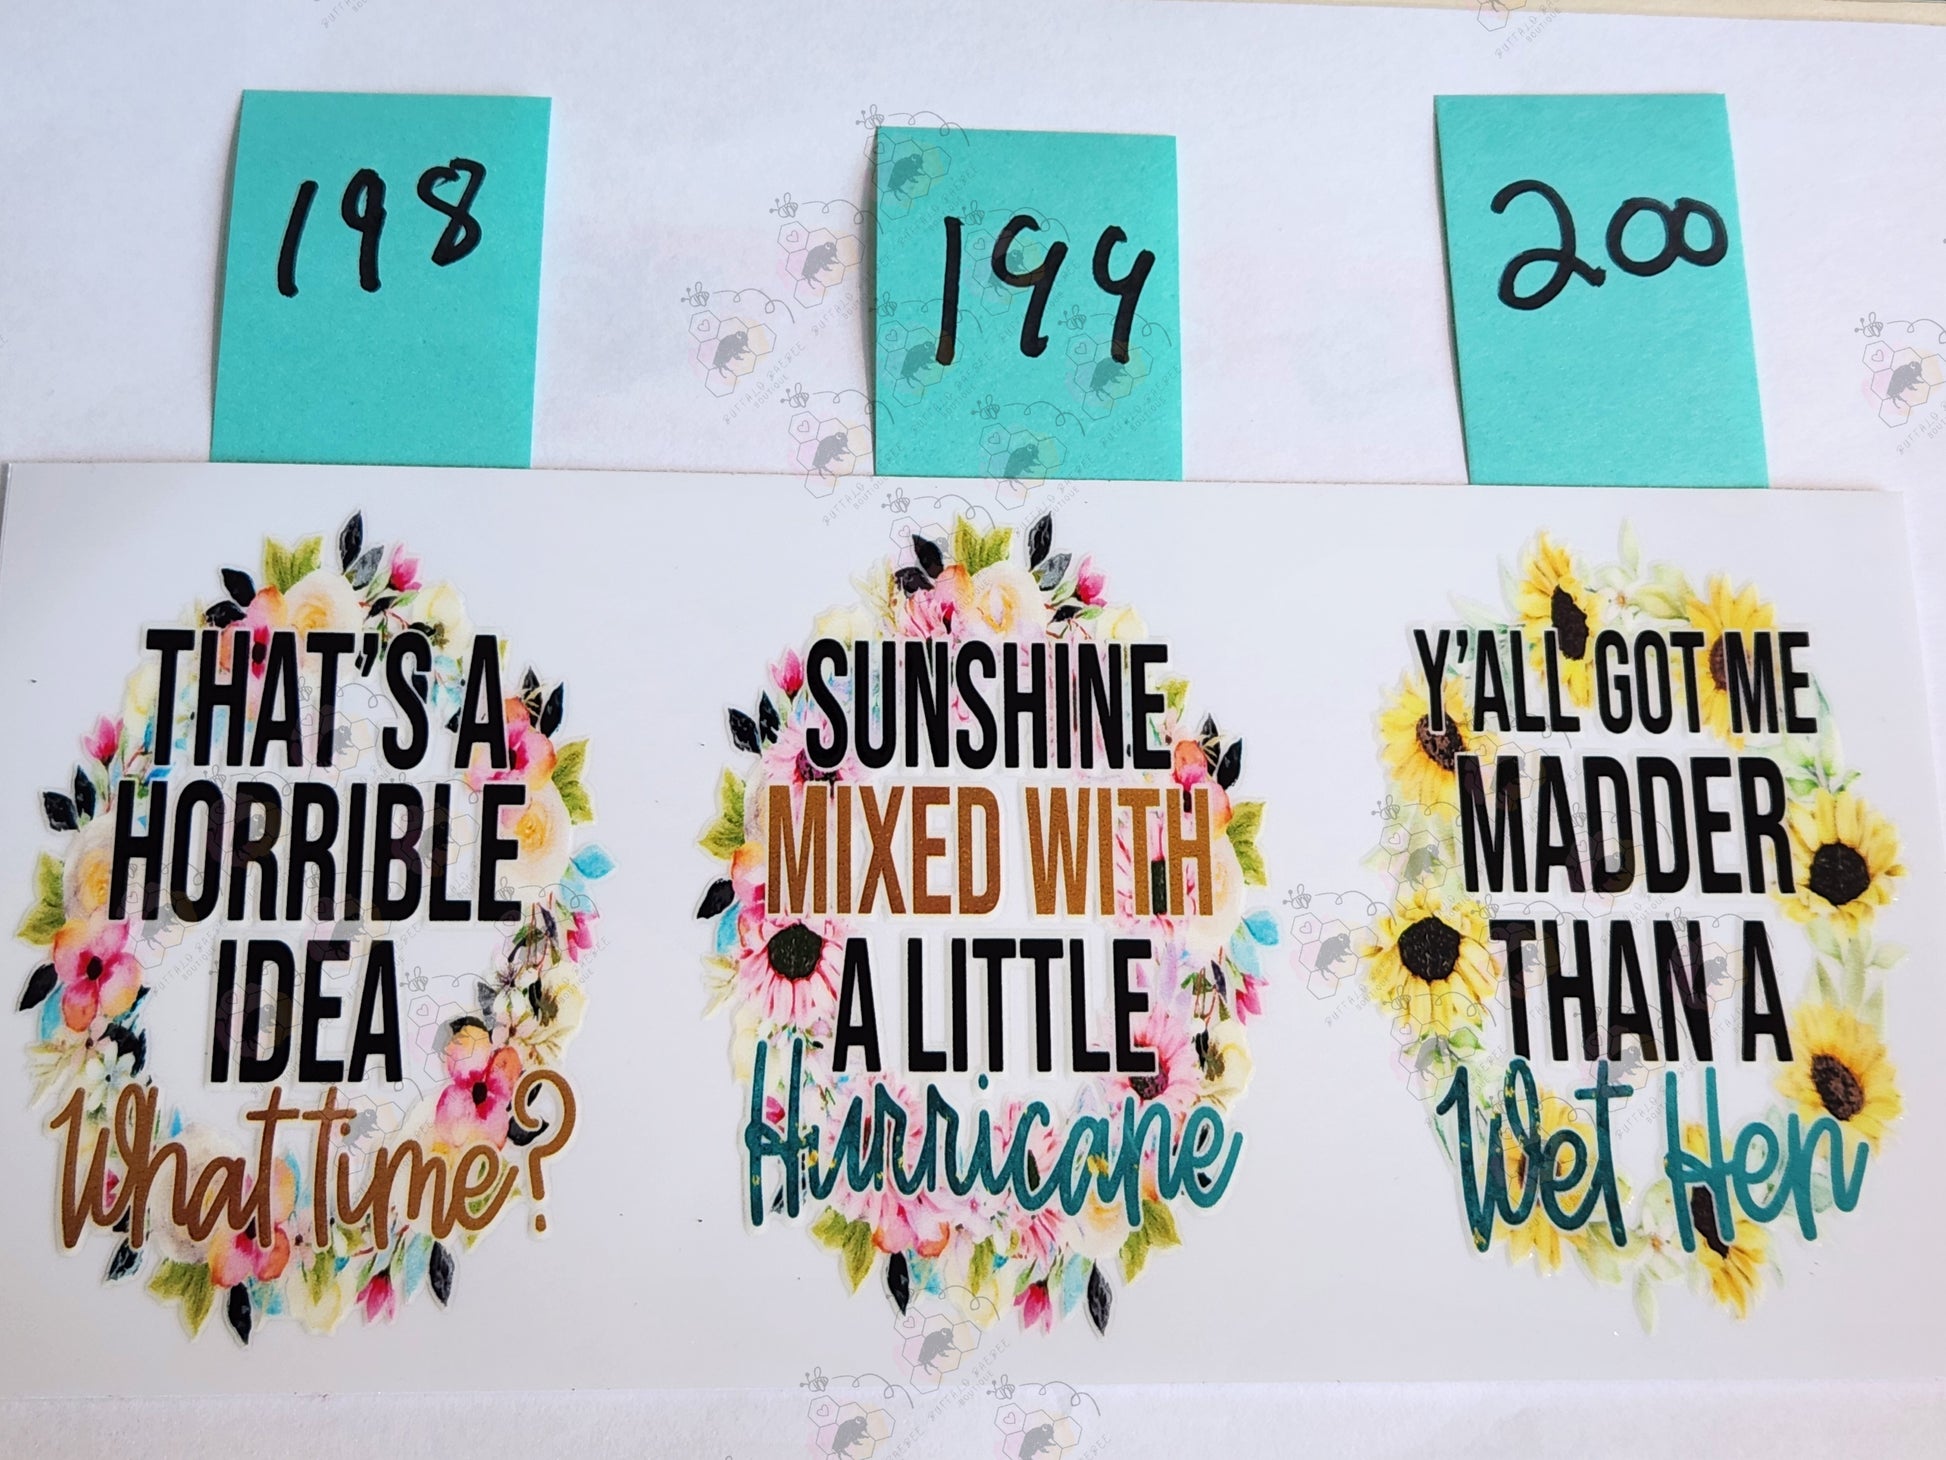 198
199
200
THAT'S A
HORRIBLE
IDEA
What time?
SUNSHINE
MIXED WITH
A LITTLE
Hurricane
Y'ALL GOT ME
MADDER
THAN A
Wet Hen
BUFFALO BAEBEE
BOUTIQUE